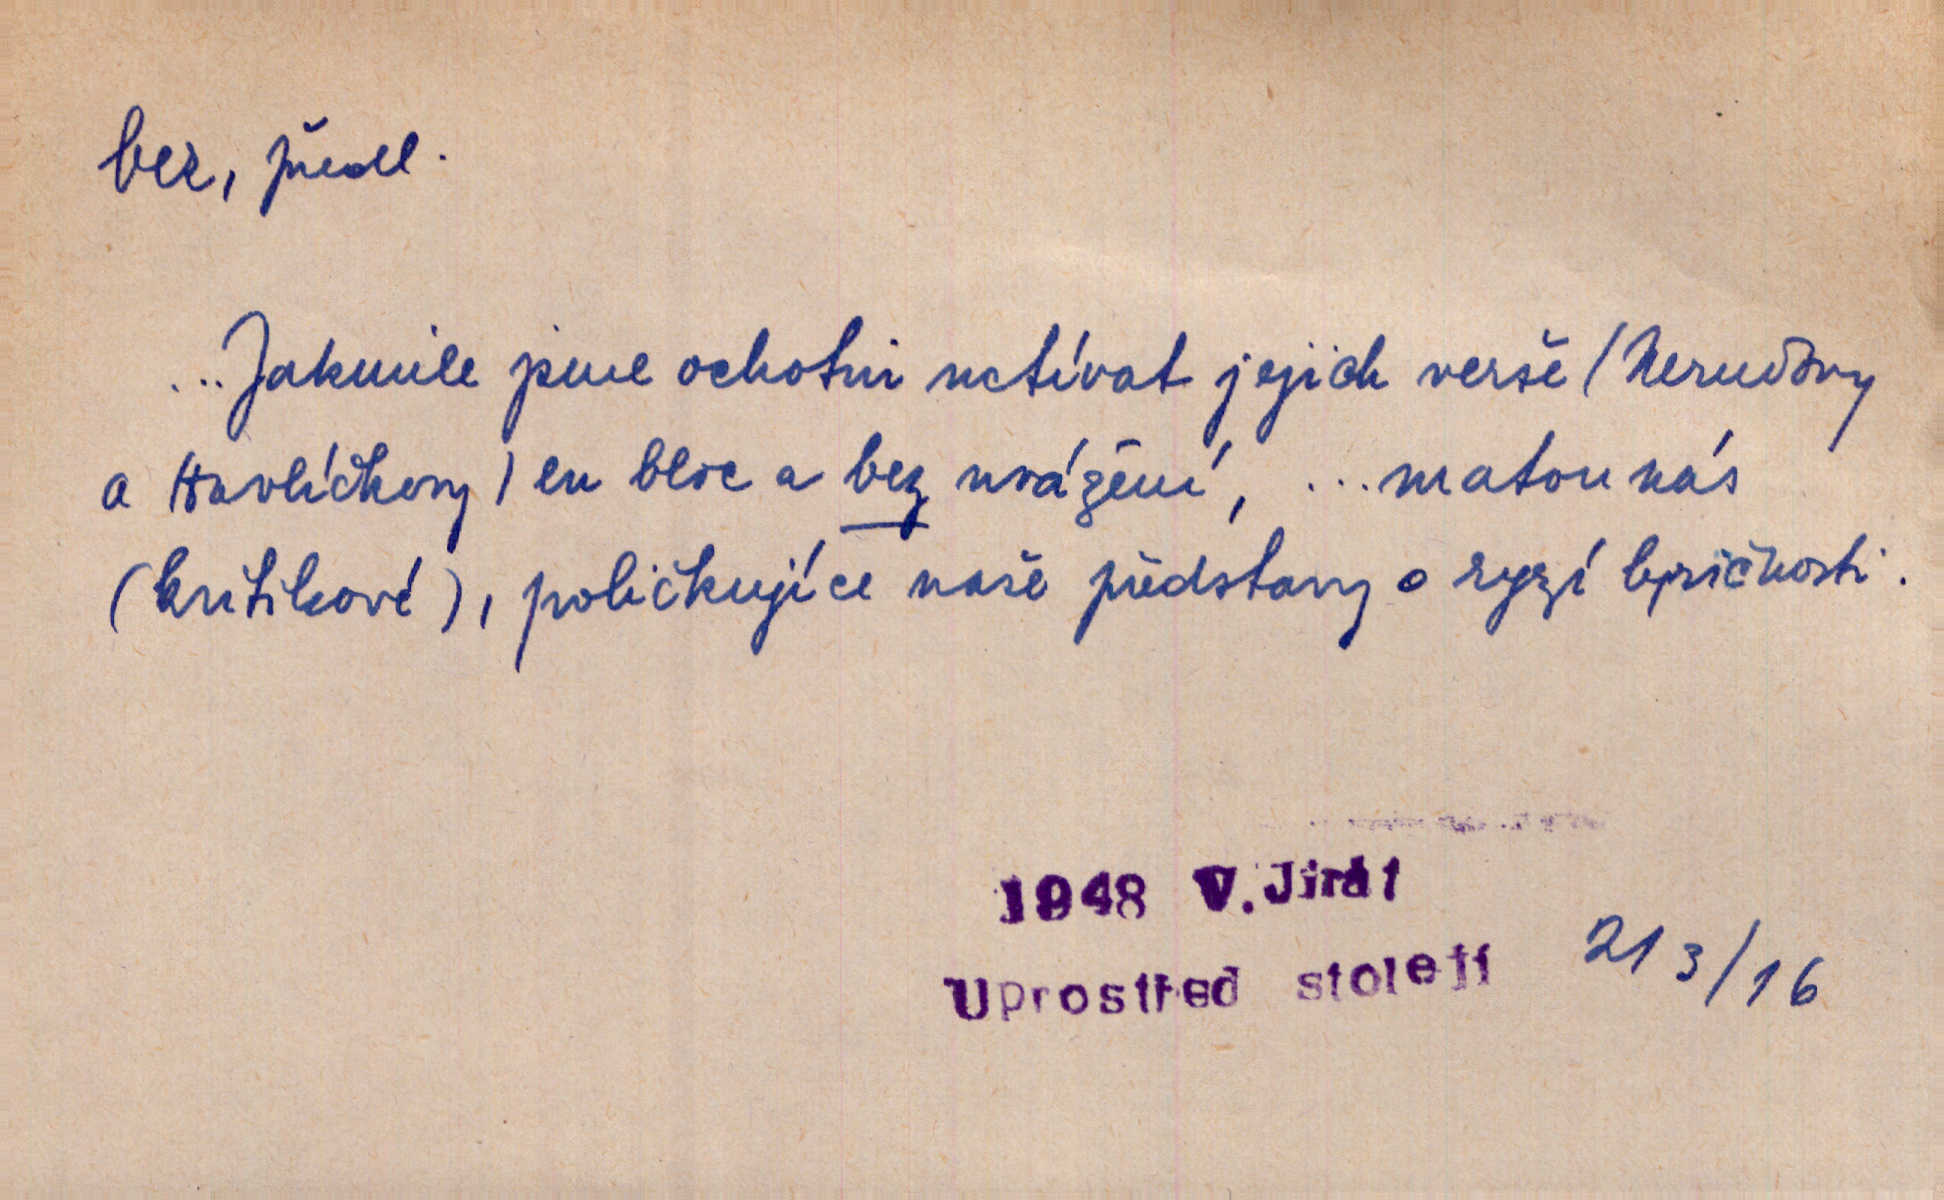 bez, předl.
...Jakmile jsme ochotni uctívat jejich verše (Nerudovy
a Havlíčkovy) en bloc a bez uvážení, ...matou nás
(kritikové), poličkujíce naše představy o ryzí lyričnosti.
1948 V. Jirát
Uprostřed století
213/16